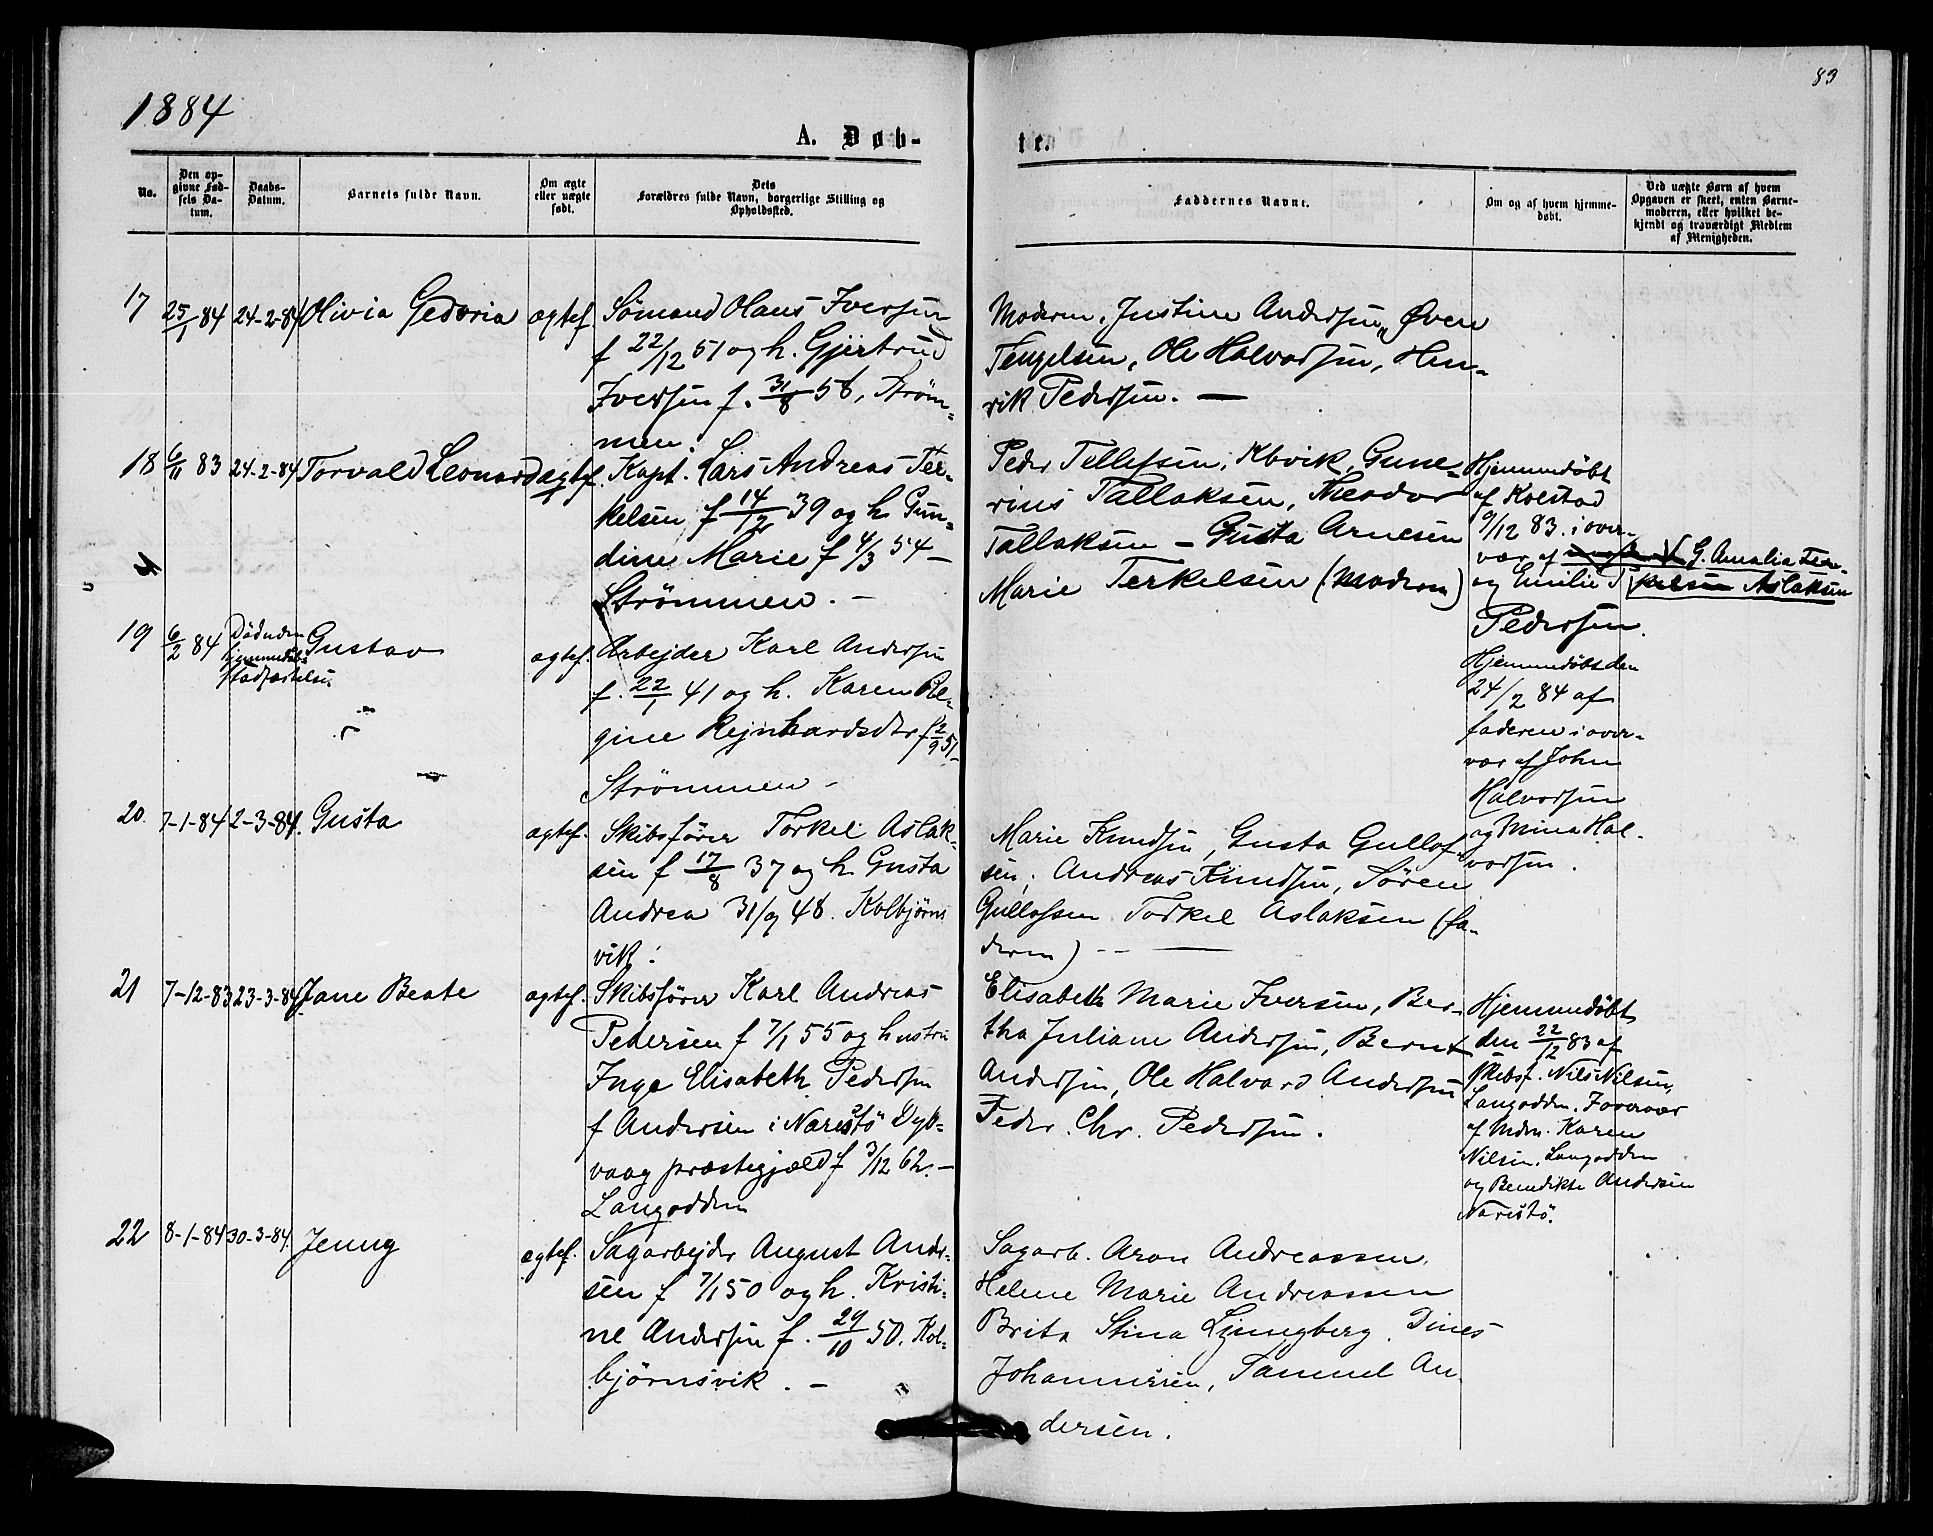 1884
83
A. Døb-
te.
No.
Den op-
givne Fød-
sels Da-
tum.
Daabs-
Datum.
Barnets fulde Navn.
Om ægte
eller uægte
født.
Dets
Forældres fulde Navn, borgerlige Stilling og
Opholdssted.
Faddernes Navne.
Om og af hvem hjemme-
døbt.
Ved uægte Børn af hvem
Opgaven er skeet, enten Barne-
moderen, eller hvilket be-
kjendt og troværdigt Medlem
af Menigheden.
17 25/1-84 24-2-84 Olivia Gedoria ægtef. Sömand Olaus Iversen
f 22/12 51 og h. Gjertrud
Iversen f. 31/8 58, Ström-
men.
Moderen, Justine Andersen, Øven
Tengelsen, Ole Halvorsen, Hen-
rik Pedersen. —
18 6/11 83 24-2-84 Torvald Leonard ægtef. Kapt. Lars Andreas Ter-
kelsen f 14/12 39 og h Gun-
dine Marie f 4/3 54 —
Strömmen. —
Peder Tellefsen, Kbvik, Gune-
rius Tallaksen, Theodor
Tallaksen – Gusta Arnesen
Marie Terkelsen (Modren)
Hjemmedöbt
af Kolstad
9/12 83. i over-
vær af G. Amalia Ter-
kelsen Aslaksen
og Emilie T
Pedersen.
19 6/2 84 Död uden
hjemmedöbs
stadfæstelse
Gustav ægtef. Arbejder Karl Andersen
f. 22/1 41 og h. Karen Re-
gine Rejnhardsdtr f 2/9 51-
Strömmen –
Hjemmedöbt den
24/2 84 af
faderen i over-
vær af John
Halvorsen
og Mina Hal-
vorsen.
20. 7-1-84 2-3-84. Gusta ægtef. Skibsförer Torkel Aslak-
sen f 17/8 37 og h. Gusta
Andrea 31/9 48. Kolbjörns
vik.
Marie Knudsen, Gusta Gullof-
sen, Andreas Knudsen, Sören
Gullofsen Torkel Aslaksen (fa-
deren) -- —
21 7-12-83 23-3-84 Jane Beate ægtef. Skibsförer Karl Andreas
Pedersen f 7/1 55 og hustru
Inga Elisabeth Pedersen
f Andersen i Narestö Dyb-
vaag præstegjæld f 3/12 62. —
Langodden
Elisabeth Marie Iversen, Ber-
tha Juliane Andersen, Bernt
Andersen, Ole Halvard Andersen
Peder. Chr. Pedersen.
Hjemmedöbt
den 22/12 83 af
Skibsf. Nils Nilsen,
Langodden. I overvær
af Mdm. Karen
Nilsen. Langodden
og Benedikte Andersen
Narestö.
22 8-1-84 30-3-84. Jenny ægtef. Sagarbejder August Ander-
sen f 7/1 50 og h. Kristi-
ne Andersen f. 29/10 50. Kol-
björnsvik. —
Sagarb. Aron Andreassen.
Helene Marie Andreassen
Brita Stina Ljungberg. Dines
Johannesen, Samuel An
dersen.